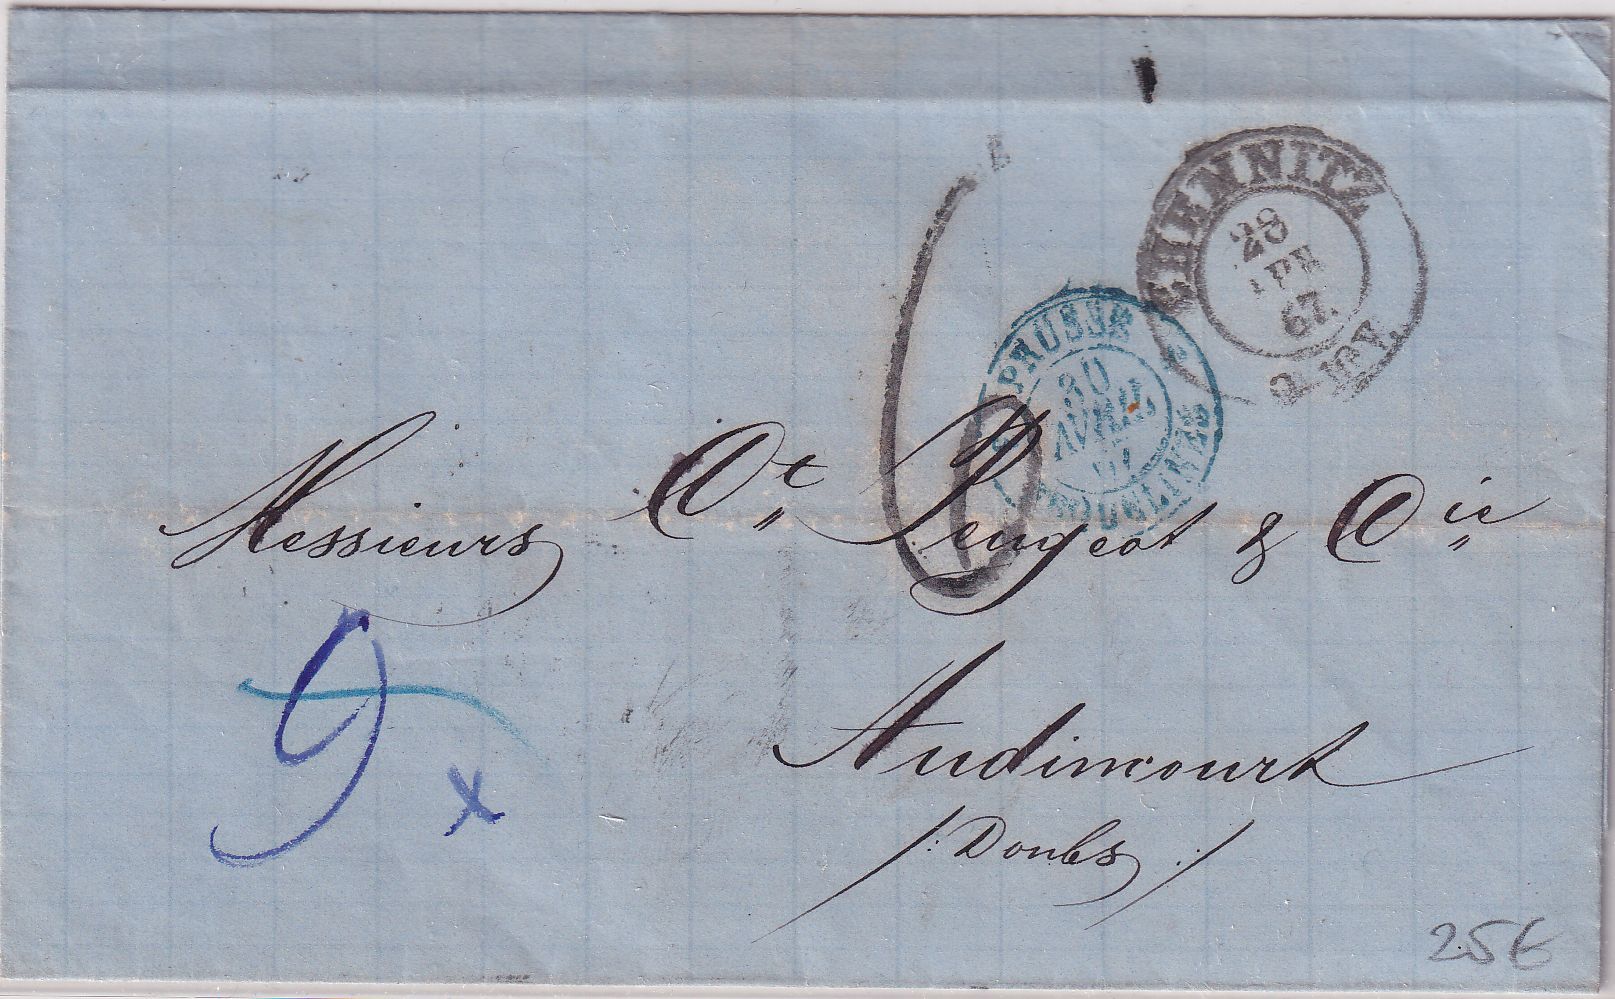 CHEMNITZ
28
APR
67.
PRUSSE
30
AVRIL
67
Messieurs Ct. Peugeot & Cie
6
9
x
Audincourt
/: Doubs :/
25€